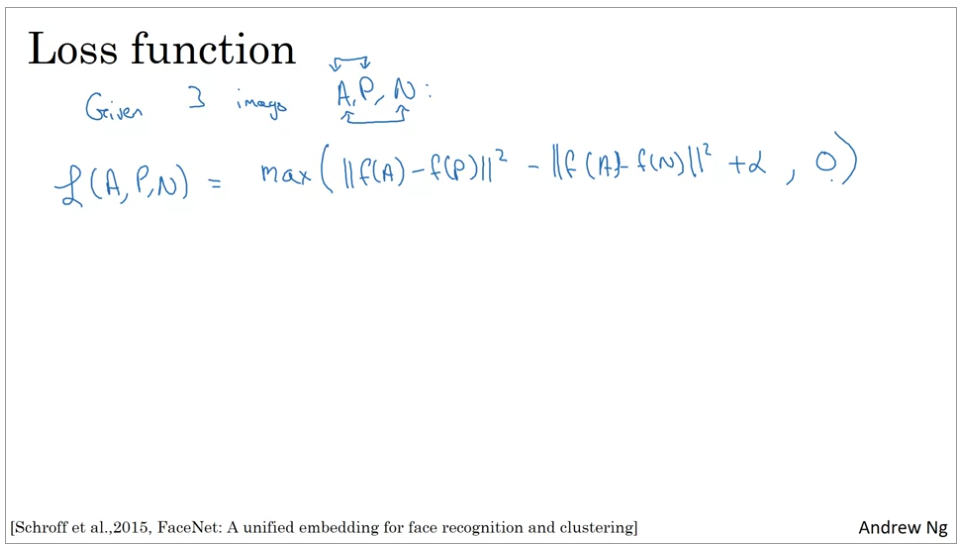 Loss function
Given 3 images A, P, N:
L(A, P, N) = max(||f(A) - f(P)||² - ||f(A) - f(N)||² + α, 0)
[Schroff et al.,2015, FaceNet: A unified embedding for face recognition and clustering]
Andrew Ng